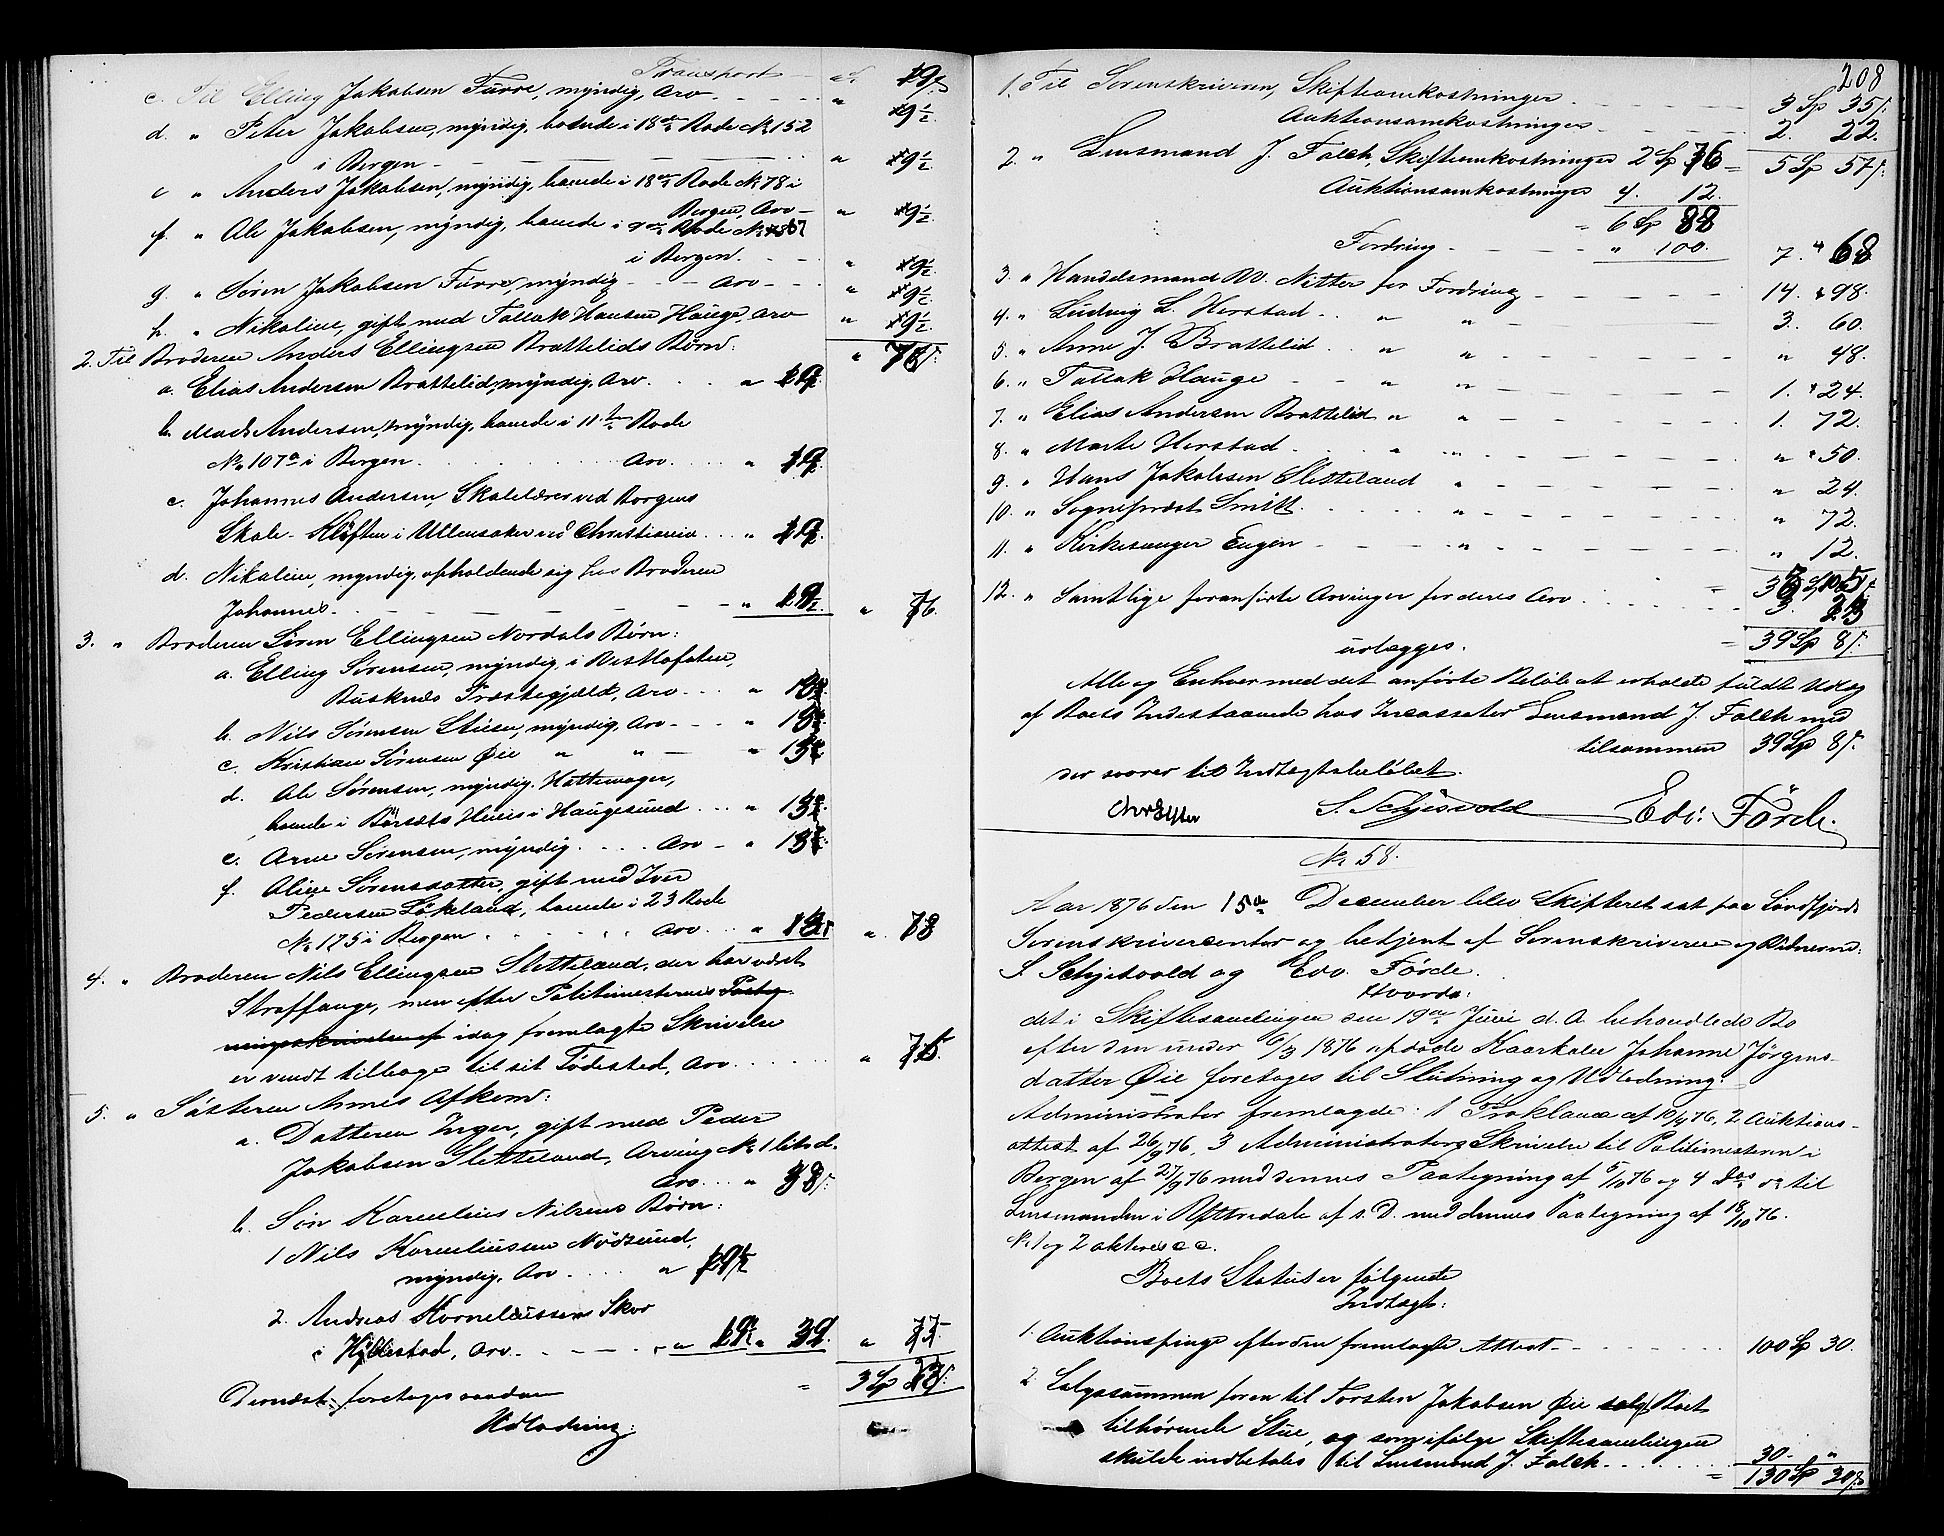 Transport
c. Til Elling Jakobsen Furre, myndig, Arv
d. " Peter Jakobsen, myndig, boende i 18de Rode No 152
i Bergen
e " Anders Jakobsen, myndig, boende i 18de Rode No 78 i
Bergen, Arv
f. " Ole Jakobsen, myndig, boende i 9de Rode No
i Bergen.
g. " Søren Jakobsen Furre, myndig Arv
h. " Nikoline, gift med Tollak Hansen Hauge, Arv
2. Til Broderen Anders Ellingsen Brattelids Børn:
a. Elias Andersen Brattelid, myndig, Arv
b. Mads Andersen, myndig, boende i 11te Rode
No 107a i Bergen. Arv.
c. Johannes Andersen, Skolelærer ved Borgens
Skole - Kløften i Ullensaker ved Christiania
d. Nikoline, myndig, opholdende sig hos Broderen
Johannes. " 76
3. " Broderen Søren Ellingsen Nordals Børn:
a. Elling Sørensen, myndig, i
Busknæs Præstegjæld, Arv
b. Nils Sørensen Stien, myndig, Arv
c. Kristian Sørensen Øie " "
d. Ole Sørensen, myndig, Hattemager,
boende i Huus i Haugesund
e. Arne Sørensen, myndig. Arv
f. Oline Sørensdatter, gift med Iver
Pedersen Løkeland, boende i 23 Rode
No 175 i Bergen Arv " 78
4. " Broderen Nils Ellingsen Sletteland, der har været
Straffange, men efter Politimesterens
idag fremlagte Skrivelse
er vendt tilbage til sit Fødested, Arv
5. " Søsteren Annes Afkom:
a. Datteren Inger, gift med Peder
Jakobsen Sletteland, Arving No 1 litr d.
Arv " 38
b. Søn Kornelius Nilsens Børn:
1 Nils Korneliussen Nødsund,
myndig, Arv
2. Andreas Korneliussen Skor
i Hyllestad, Arv.
3 Sp 23
Dernæst foretoges saadan
Udlodning:
208
1. Til Sorenskriveren, Skifteomkostninger 3 Sp 35 s.
Auktionsomkostninger 2. 22.
5 Sp 57 s.
2. " Lensmand J. Falch, Skifteomkostninger 2 Sp 76
Auktionsomkostninger 4. 12.
6 Sp 88
Fordring " 100. 7. " 68
3. " Handelsmand W. Nitter for Fordring 14. " 98.
4. " Ludvig L. Herstad " " 3. 60.
5. " Anne J. Brattelid " " " 48.
6. " Tollak Hauge " " 1. " 24.
7. " Elias Andersen Brattelid " " 1. 72.
8. " Marte Herstad " " " " 50.
9. " Hans Jakobsen Sletteland " " 24.
10. " Sogneprest Smitt " " 72.
11. " Kirkesanger Eugen " " 12.
12. " Samtlige foranførte Arvinger for deres Arv 3. 23
udlægges. 39 Sp 8 s.
Alle og Enhver med det anførte Beløb at erholde fuldt Udlæg
af Boets Indestaaende hos Incassator Lensmand J. Falch med
tilsammen 39 Sp 8 s.
der svarer til Indtægtsbeløbet.
S. Schjesvold Edv: Førde.
No 58.
Aar 1876 den 15de December blev Skifteret sat paa Søndfjords
Sorenskriverkontor og betjent af Sorenskriveren og Vidnerne:
S. Schjesvold og Edv. Førde.
Hvorda:
det i Skiftesamlingen den 19de Juni d. A. behandlede Bo
efter den under 6/3 1876 afdøde Kaarkone Johanne Jørgens-
datter Øie foretoges til Slutning og Udlodning:
Administrator fremlagde: 1 Proklama af 10/7 76, 2 Auktions-
attest af 26/9 76, 3 Administrators Skrivelse til Politimesteren i
Bergen af 27/9 76 med dennes Paategning af 5/10 76 og 4 do do til
Lensmanden i Yttredale af s. D. med dennes Paategning af 18/10 76.
No 1 og 2 akteres c c.
Boets Status er følgende
Indtægt:
1. Auktionspenge efter den fremlagte Attest 100 Sp 30.
2 Salgssummen for en til Torsten Jakobsen Øie solgt Boet
tilhørende Stue, og som ifølge Skiftesamlingen
skulde indbetales til Lensmand J. Falch. 30 - "
= 130 Sp 30 s.